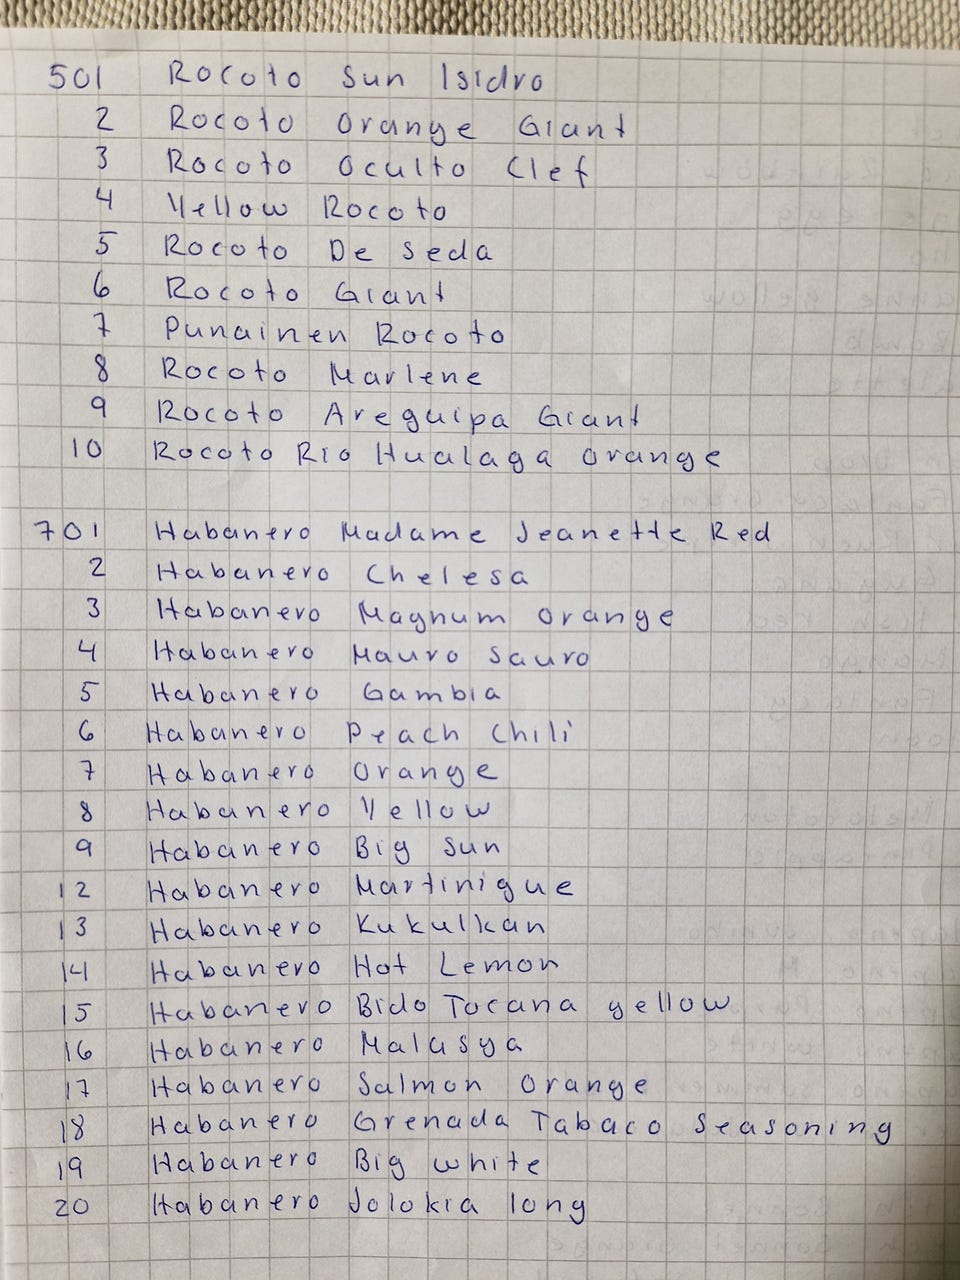 501 Rocoto Sun Isidro
2 Rocoto Orange Giant
3 Rocoto Oculto Clef
4 Yellow Rocoto
5 Rocoto De Seda
6 Rocoto Giant
7 Punainen Rocoto
8 Rocoto Marlene
9 Rocoto Areguipa Giant
10 Rocoto Rio Hualaga Orange
701 Habanero Madame Jeanette Red
2 Habanero Chelesa
3 Habanero Magnum Orange
4 Habanero Mauro Sauro
5 Habanero Gambia
6 Habanero Peach Chili
7 Habanero Orange
8 Habanero Yellow
9 Habanero Big Sun
12 Habanero Martinigue
13 Habanero Kukulkan
14 Habanero Hot Lemon
15 Habanero Bido Tocana yellow
16 Habanero Malasya
17 Habanero Salmon Orange
18 Habanero Grenada Tabaco Seasoning
19 Habanero Big white
20 Habanero Jolokia long